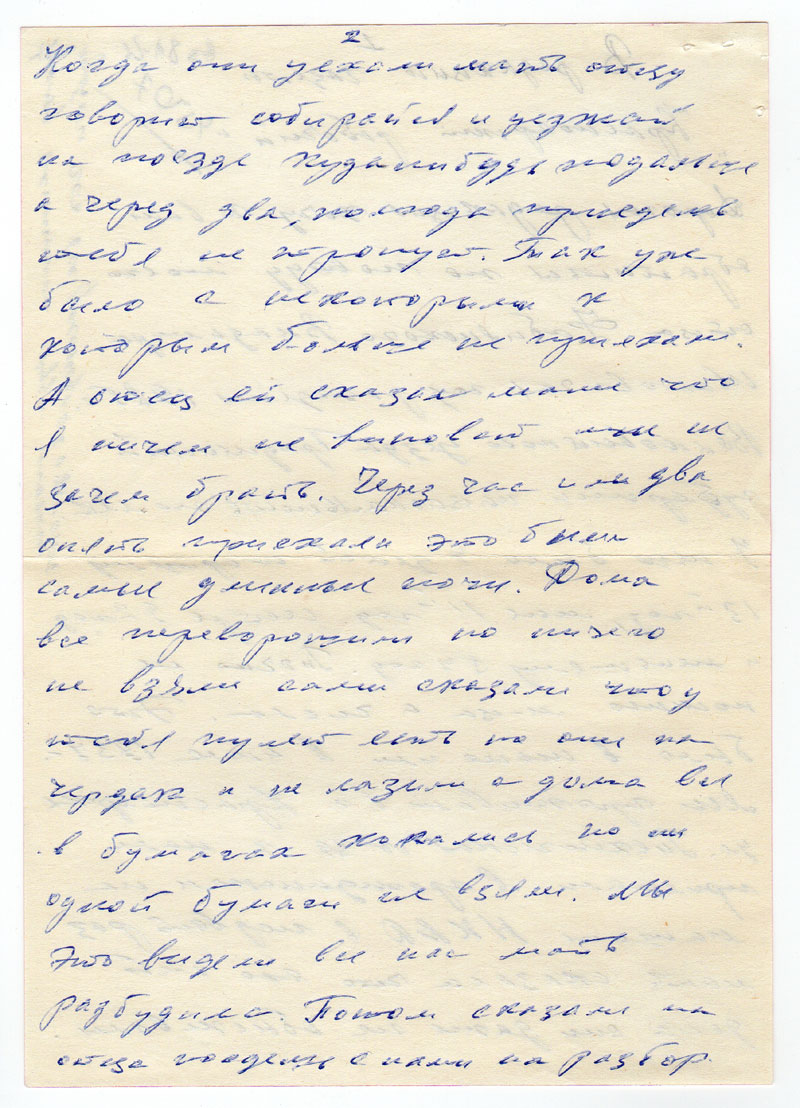 2
Когда они уехали мать отцу
говорит собирайся и уезжай
на поезде куданибудь подальше
а черед два, полгода приедеш
тебя не тронут. Так уже
было с некоторыми к
которым больше не приехали.
А отец ей сказал мать что
я ничем не виноват не
зачем брать. Через час или два
опять приехали это были
самые длинные ночи. Дома
все переворошили но ничего
не взяли сами сказали что у
тебя пулет есть но они на
чердак и не лазили а дома все
в бумагах копались но ни
одной бумаги не взяли. Мы
это видели все нас мать
разбудила. Потом сказали на
отца поедеш с нами на разбор